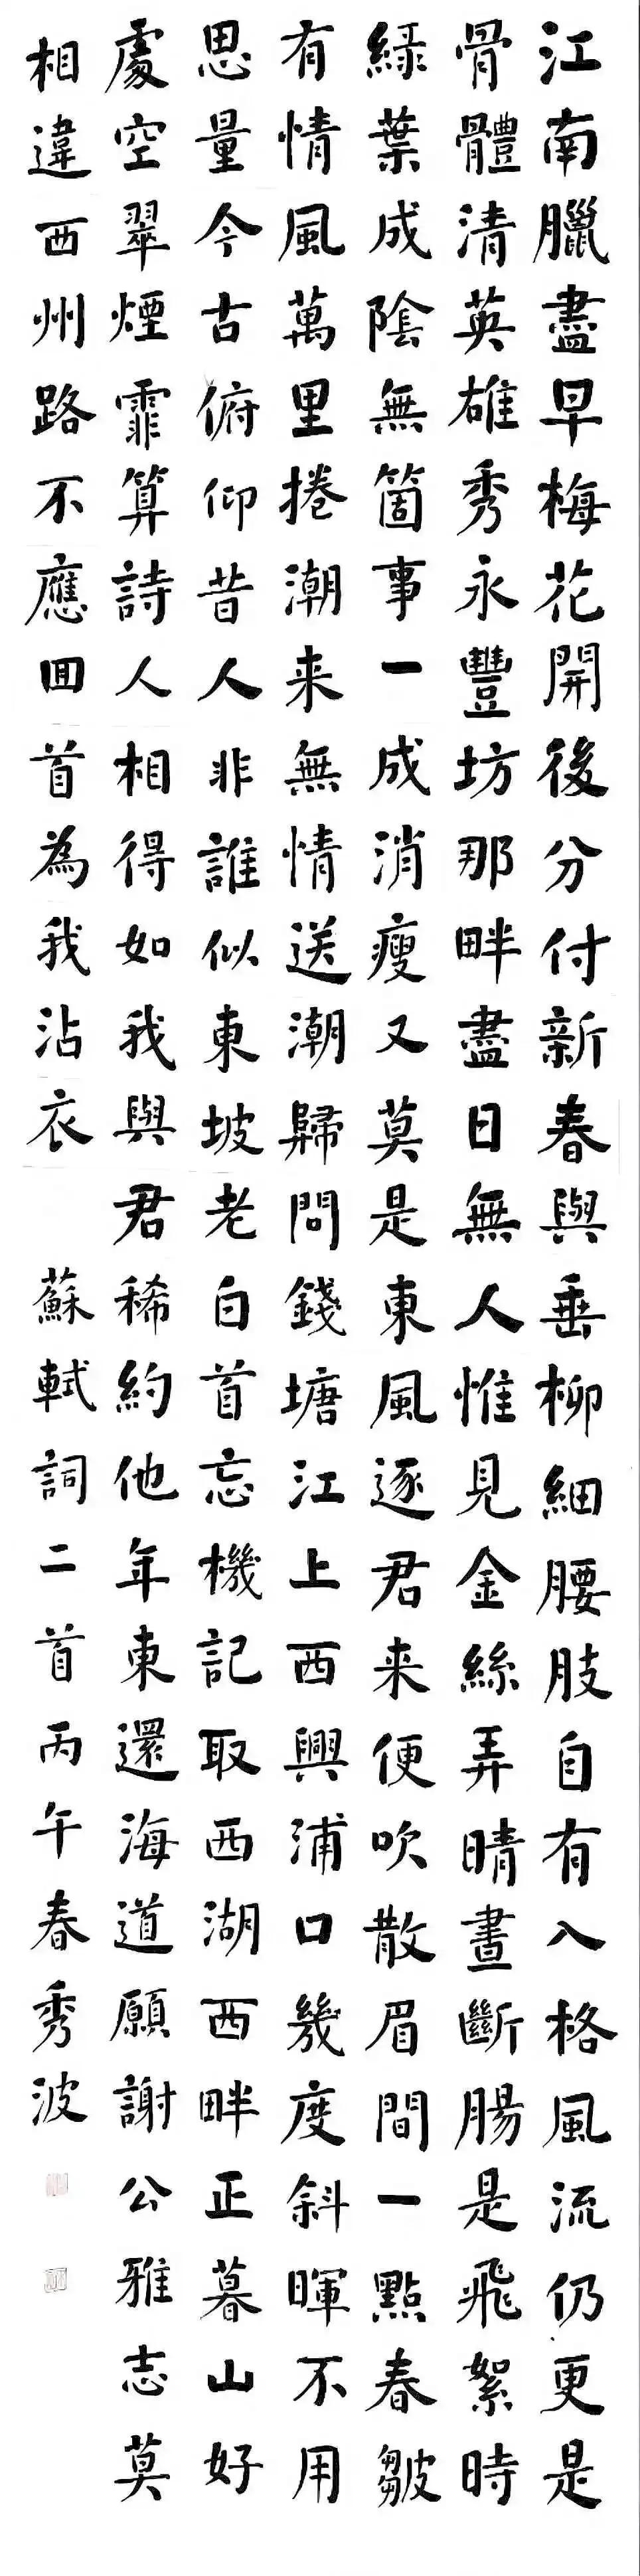 江南臘盡早梅花開後分付新春與垂柳細腰肢自有入格風流仍更是
骨體清英雄秀永豐坊那畔盡日無人惟見金絲弄晴晝斷腸是飛絮時
綠葉成陰無箇事一成消瘦又莫是東風逐君来便吹散眉間一點春皺
有情風萬里捲潮来無情送潮歸問錢塘江上西興浦口幾度斜暉不用
思量今古俯仰昔人非誰似東坡老白首忘機記取西湖西畔正暮山好
處空翠煙霏算詩人相得如我與君稀約他年東還海道願謝公雅志莫
相違西州路不應囬首為我沾衣 蘇軾詞二首丙午春秀波